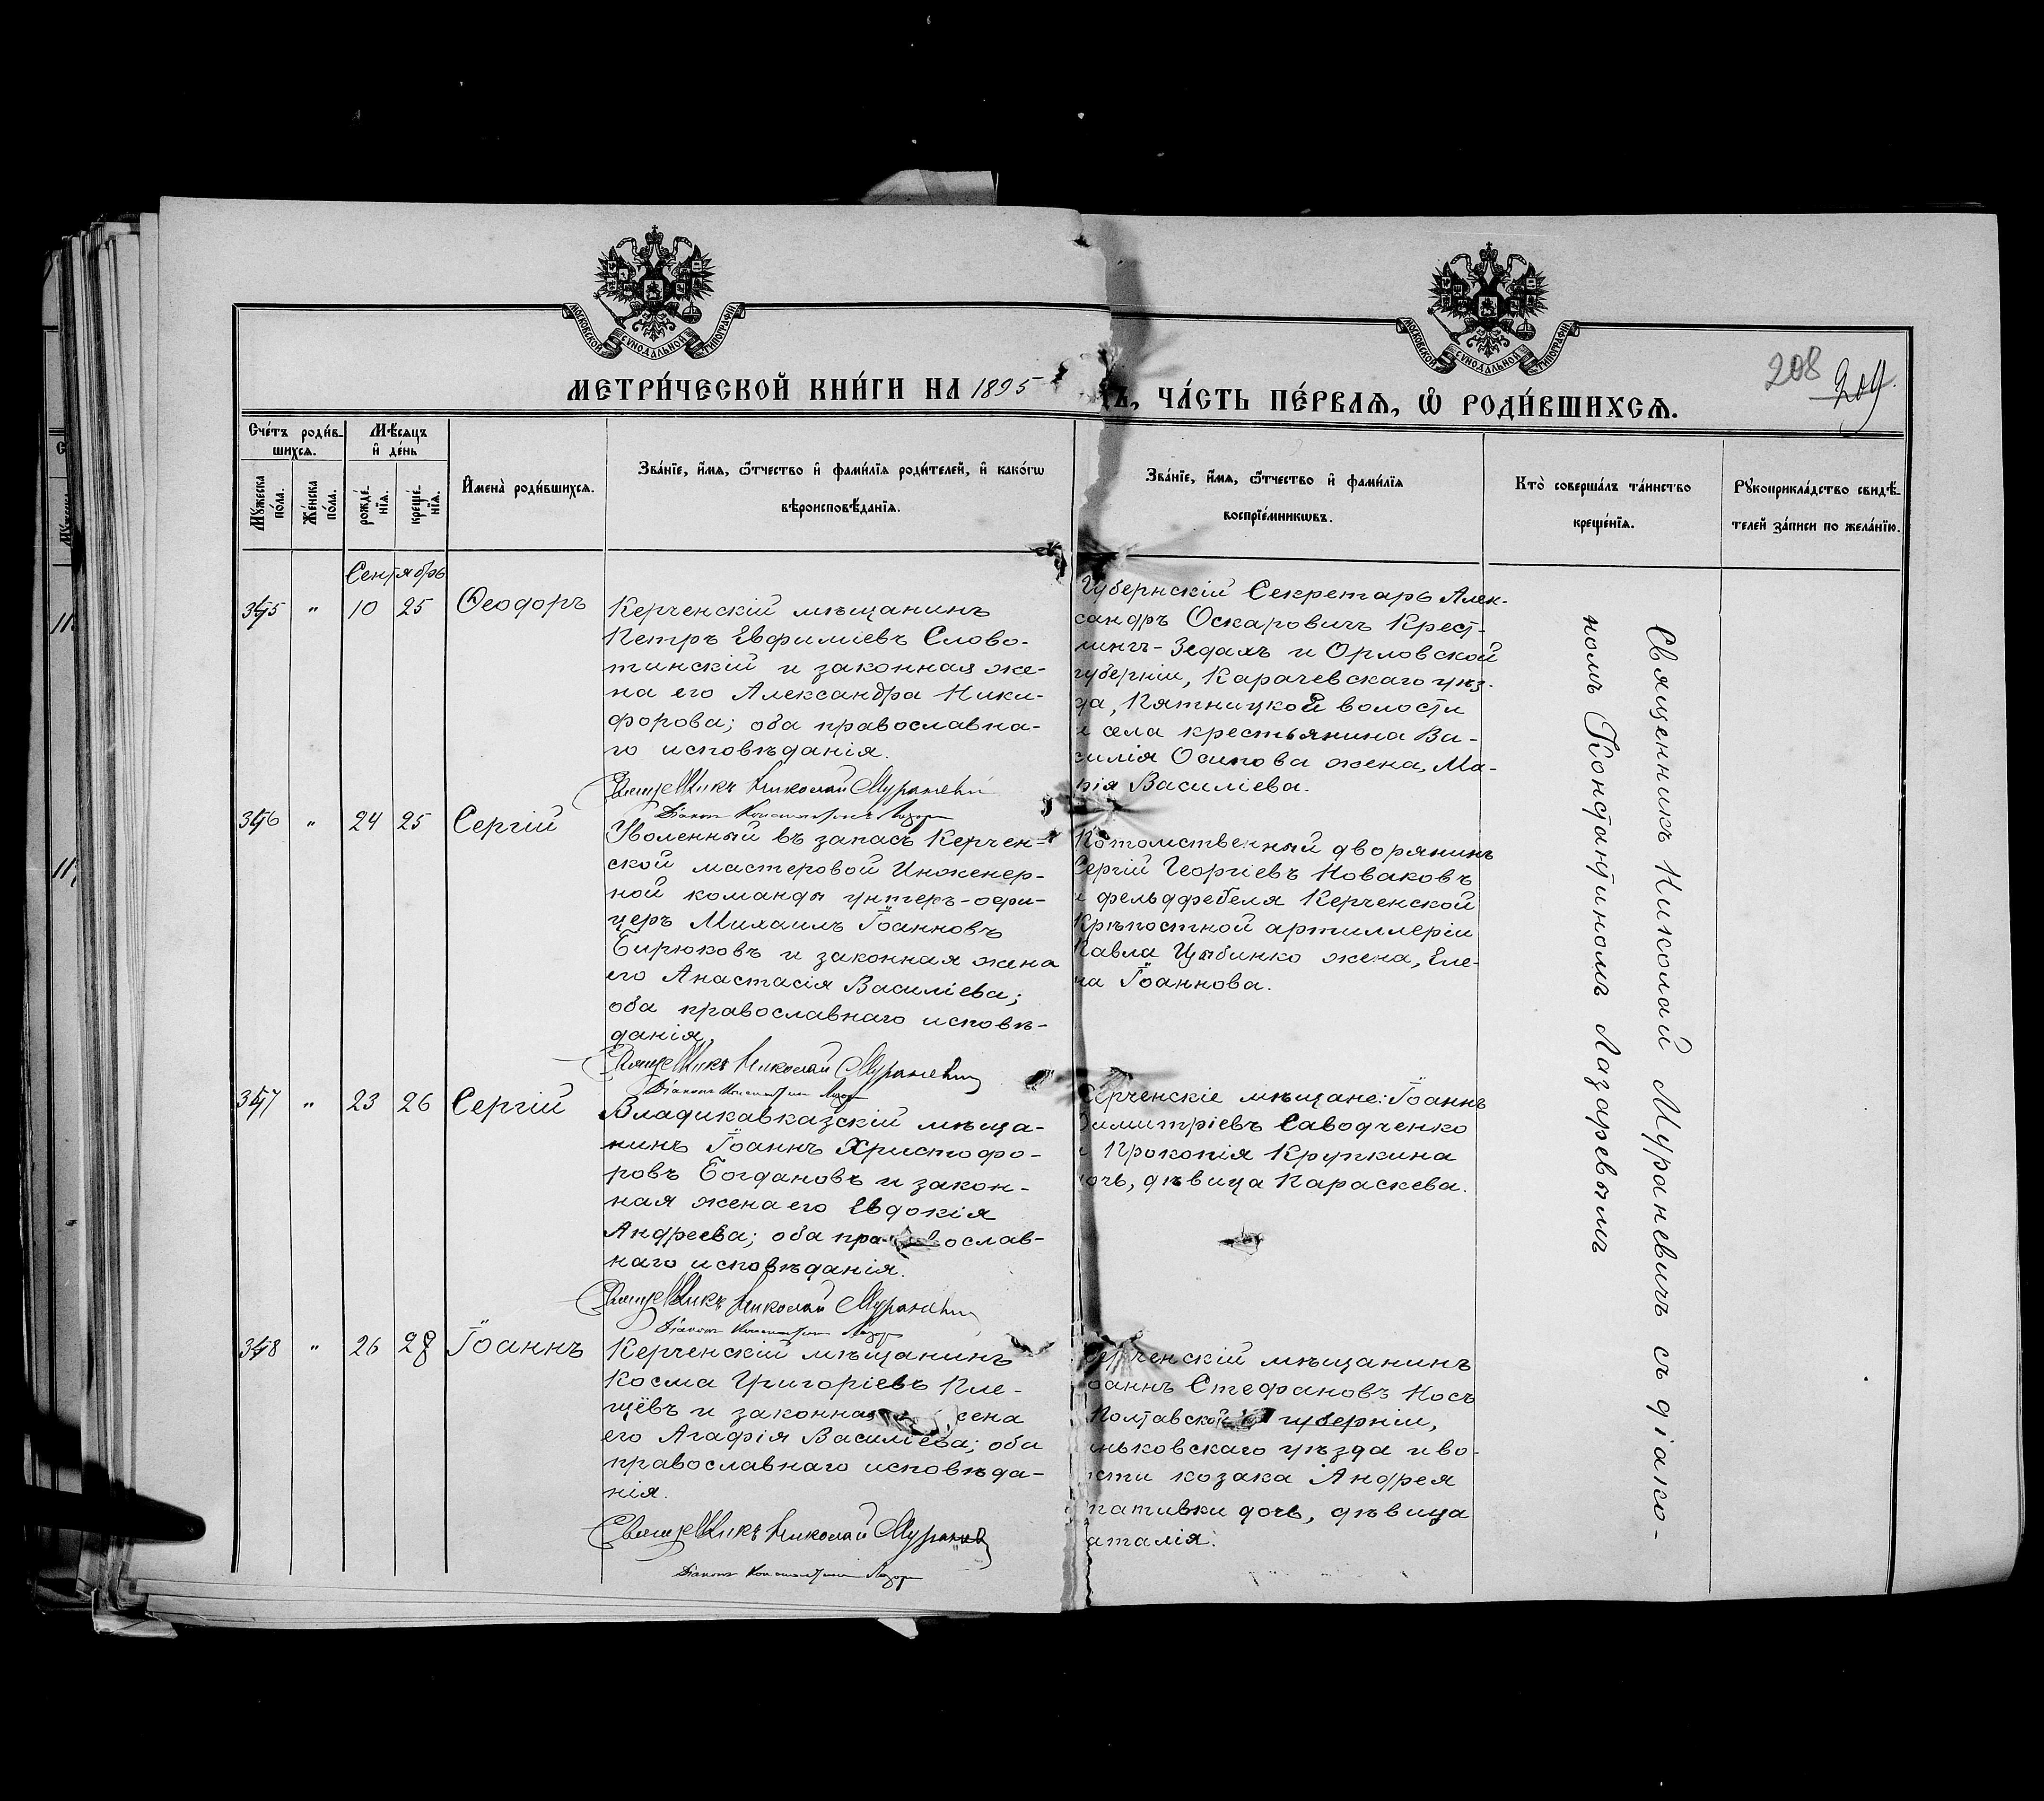 МОСКОВСКОЙ СУНОДАЛЬНОЙ ТИПОГРАФІИ
МОСКОВСКОЙ СУНОДАЛЬНОЙ ТИПОГРАФІИ
208 209.
МЕТРИ́ЧЕСКОЙ КНИ́ГИ НА 1895
Ъ, ЧА́СТЬ ПЕ́РВАѦ, Ѽ РОДИ́ВШИХСѦ.
Сче́тъ роди́в-
шихсѧ.
Мѣ́сѧцъ
и҆ де́нь
Мꙋ́жеска
по́ла.
Же́нска
по́ла.
рожде́-
нїѧ.
креще́-
нїѧ.
И҆мена̀ роди́вшихсѧ.
Зва́нїе, и҆́мѧ, ѻ҆́тчество и҆ фами́лїѧ роди́телей, и҆ како́гѡ
вѣроисповѣ́данїѧ.
Зва́нїе, и҆́мѧ, ѻ҆́тчество и҆ фами́лїѧ
воспрїе́мникѡвъ.
Кто̀ соверша́лъ та́инство
креще́нїѧ.
Рꙋкоприкла́дство свидѣ́-
телей за́писи по жела́нїю.
Сентябрь
345 " 10 25 Ѳеодоръ
Керченскій мѣщанинъ
Петръ Евфиміевъ Слово-
тинскій и законная же-
на его Александра Ники-
форова; оба православна-
го исповѣданія.
Священникъ Николай Мураневичъ
Діаконъ Константинъ Лазар
Губернскій Секретарь Алек-
сандръ Оскаровичъ Крест-
лингъ-Зедахъ и Орловской
губерніи, Карачевскаго уѣз-
да, Пятницкой волости
и села крестьянина Ва-
силія Осипова жена, Ма-
рія Василіева.
346 " 24 25 Сергій
Уволенный въ запасъ Керчен-
ской мастеровой Инженер-
ной команды унтеръ-офи-
церъ Михаилъ Іоанновъ
Бирюковъ и законная жена
его Анастасія Василіева;
оба православнаго исповѣ-
данія.
Священникъ Николай Мураневичъ
Діаконъ Константинъ Лазар
Потомственный дворянинъ
Сергій Георгіевъ Новаковъ
и фельдфебеля Керченской
Крѣпостной артиллеріи
Павла Цыбинко жена, Еле-
на Іоаннова.
347 " 23 26 Сергій
Владикавказскій мѣща-
нинъ Іоаннъ Христофо-
ровъ Богдановъ и закон-
ная жена его Евдокія
Андреева; оба православ-
наго исповѣданія.
Священникъ Николай Мураневичъ
Діаконъ Константинъ Лазар
Керченскіе мѣщане: Іоаннъ
Димитріевъ Саводченко
и Прокопія Крупкина
дочь, дѣвица Параскева.
348 " 26 28 Іоаннъ
Керченскій мѣщанинъ
Косма Григоріевъ Кле-
щёвъ и законная жена
его Агафія Василіева; оба
православнаго исповѣда-
нія.
Священникъ Николай Мураневичъ
Діаконъ Константинъ Лазар
Керченскій мѣщанинъ
Іоаннъ Стефановъ Носъ
Полтавской губерніи,
ньковскаго уѣзда и во-
сти козака Андрея
пативки дочь, дѣвица
аталія.
Священникъ Николай Мураневичъ съ діако-
номъ Константиномъ Лазаревымъ